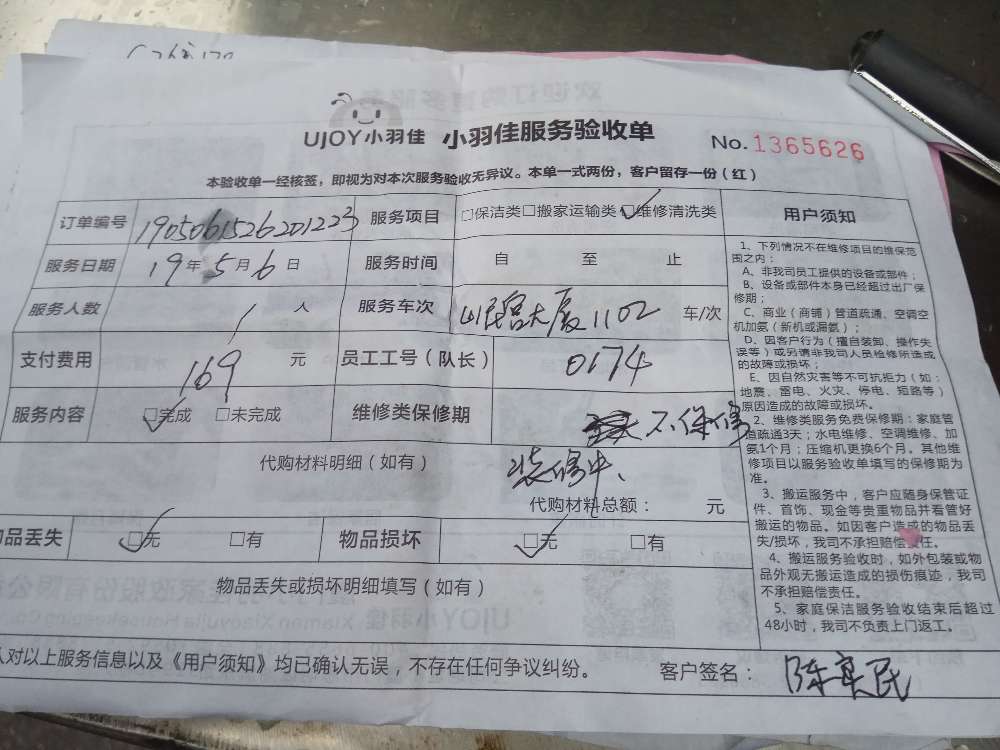 UJOY小羽佳 小羽佳服务验收单 No. 1365626
本验收单一经核签，即视为对本次服务验收无异议。本单一式两份，客户留存一份（红）
订单编号 1905061526201223 服务项目 □保洁类□搬家运输类□维修清洗类
服务日期 19年5月6日 服务时间 自 至 止
服务人数 1人 服务车次 大厦1102 车/次
支付费用 169 元 员工工号（队长） 0174
服务内容 □完成 □未完成 维修类保修期 不保修
代购材料明细（如有） 装修中、
代购材料总额： 元
品丢失 □无 □有 物品损坏 □无 □有
物品丢失或损坏明细填写（如有）
人对以上服务信息以及《用户须知》均已确认无误，不存在任何争议纠纷。 客户签名： 陈 民
用户须知
1、下列情况不在维修项目的维保范
围之内：
A、非我司员工提供的设备或部件；
B、设备或部件本身已经超过出厂保
修期；
C、商业（商铺）管道疏通、空调空
机加氨（新机或漏氨）；
D、因客户行为（擅自装卸、操作失
误等）或另请非我司人员检修所造成
的故障或损坏；
E、因自然灾害等不可抗拒力（如：
地震、雷电、火灾、停电、短路等）
原因造成的故障或损坏。
2、维修类服务免费保修期：家庭管
道疏通3天；水电维修、空调维修、加
氨1个月；压缩机更换6个月。其他维
修项目以服务验收单填写的保修期为
准。
3、搬运服务中，客户应随身保管证
件、首饰、现金等贵重物品并看管好
搬运的物品。如因客户造成的物品丢
失/损坏，我司不承担赔偿责任。
4、搬运服务验收时，如外包装或物
品外观无搬运造成的损伤痕迹，我司
不承担赔偿责任。
5、家庭保洁服务验收结束后超过
48小时，我司不负责上门返工。